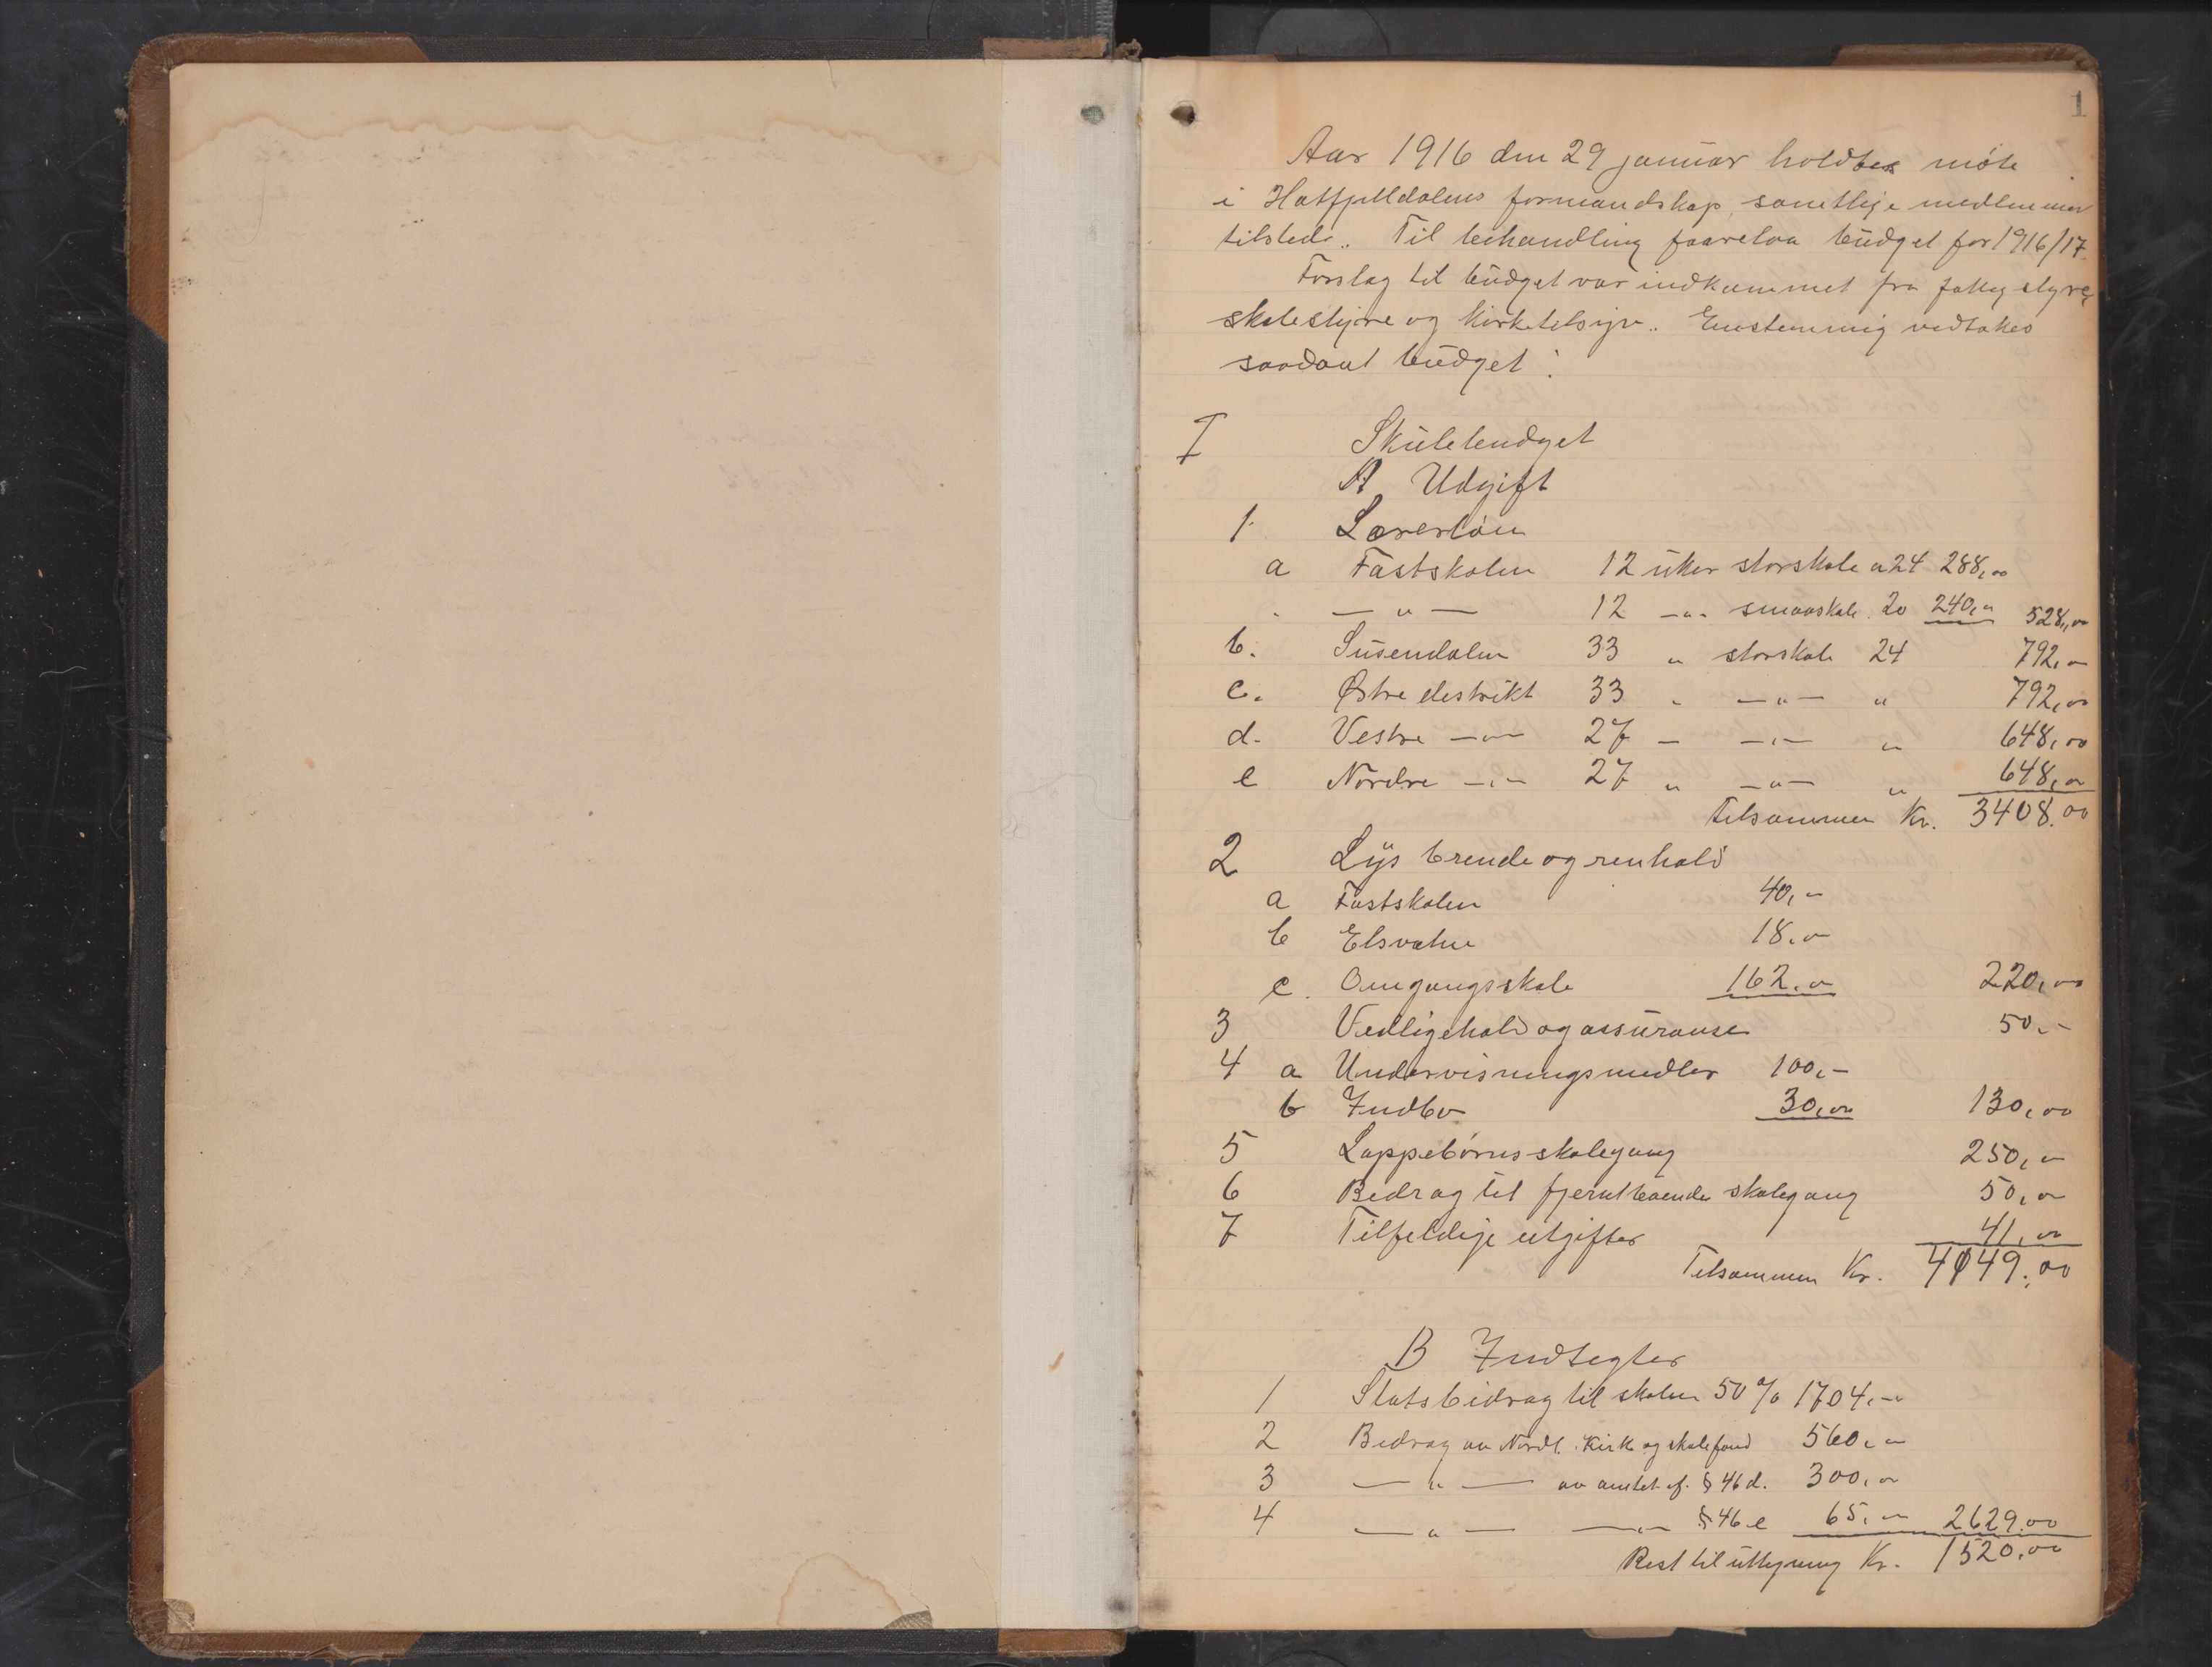 1
Aar 1916 den 29 januar holdtes møte
i Hatfjelldalens formandskap, samtlige medlemmer
tilstede. Til behandling foorelaa büdget for 1916/17.
Forslag til büdget var indkommet fra fattigstyre,
skolestyre og kirketilsyn. Enstemmig vedtakes
saadant büdget:
I Skulebudget
A Udgift
1. Lærerløn
a Fastskolen 12 üker storskole a 24 288,00
— " — 12 — " — smaaskole 20 240,00 528,00
b. Süsendalen 33 " storskole 24 792,00
c. Østre distrikt 33 " — " — " 792,00
d. Vestre — " — 27 — — " — " 648,00
e Nordre — " — 27 " — " — " 648,00
Tilsammen Kr. 3408.00
2 Lys brende og renhold
a Fastskolen 40,00
b Elsvatne 18,00
c. Omgangsskole 162,00 220,00
3 Vedligehold og assüranse 50,00
4 a Undervisningsmidler 100,00
b Indbo 30,00 130,00
5 Lappebørns skolegang 250,00
6 Bidrag til fjerntboende skolegang 50,00
7 Tilfeldige utgifter 41,00
Tilsammen Kr. 4149,00
B Indtegter
1 Statsbidrag til skolen 50 % 1704,00
2 Bidrag av Nordl. Kirke og skolefond 560,00
3 — " — av amtet cf. § 46 d. 300,00
4 — " — — " — § 46 e 65,00 2629.00
Rest til ütligning Kr. 1520,00